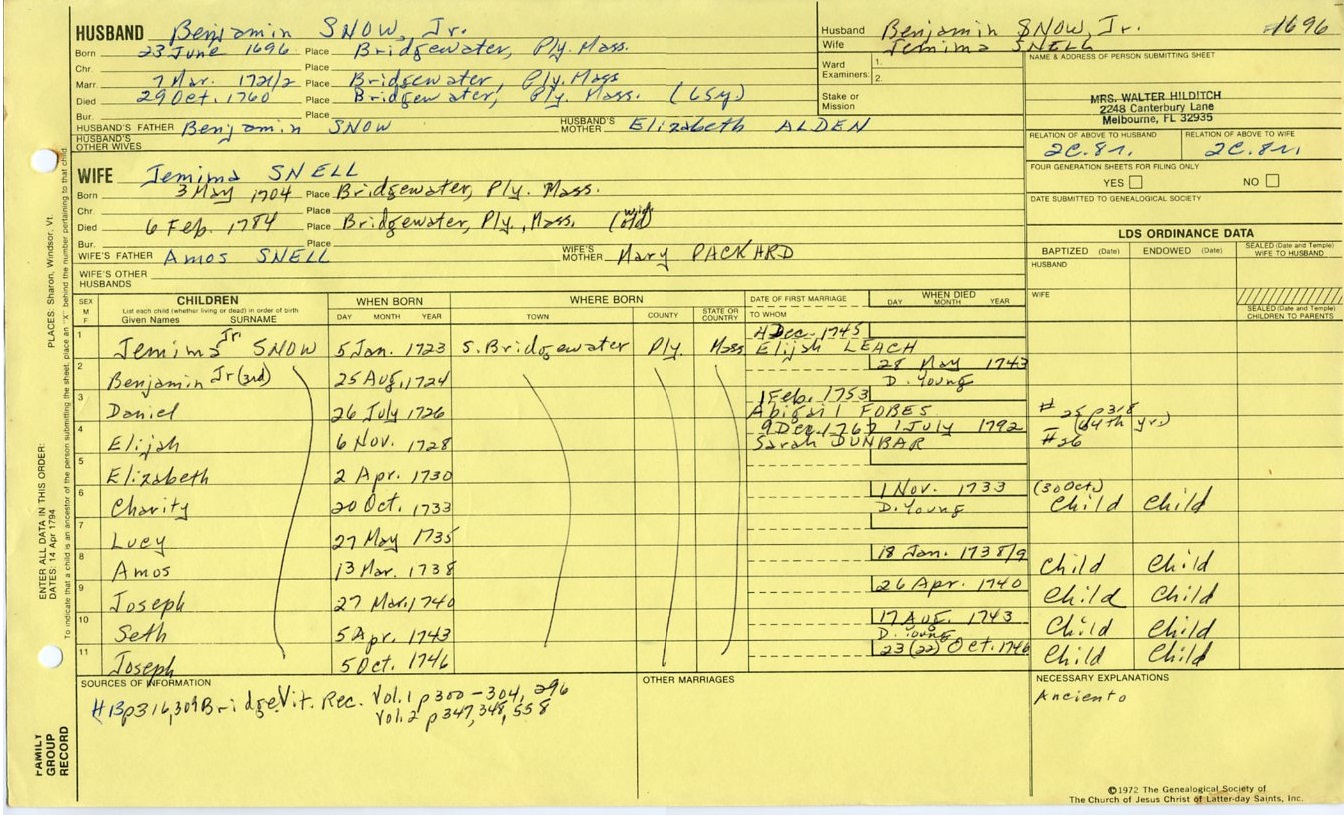 HUSBAND Benjamin SNOW, Jr.
Born 23 June 1696 Place Bridgewater, Ply. Mass.
Chr. Place
Marr. 7 Mar. 1721/2 Place Bridgewater, Ply. Mass
Died 29 Oct. 1760 Place Bridgewater, Ply. Mass. (65y)
Bur. Place
HUSBAND'S FATHER Benjamin SNOW HUSBAND'S MOTHER Elizabeth ALDEN
HUSBAND'S OTHER WIVES
WIFE Jemima SNELL
Born 3 May 1704 Place Bridgewater, Ply. Mass.
Chr. Place
Died 6 Feb. 1784 Place Bridgewater, Ply., Mass. (wid)
Bur. Place
WIFE'S FATHER Amos SNELL WIFE'S MOTHER Mary PACKARD
WIFE'S OTHER HUSBANDS
Husband Benjamin SNOW, Jr. 1696
Wife Jemima SNELL
Ward Examiners: 1.
2.
Stake or Mission
NAME & ADDRESS OF PERSON SUBMITTING SHEET
MRS. WALTER HILDITCH
2248 Canterbury Lane
Melbourne, FL 32935
RELATION OF ABOVE TO HUSBAND RELATION OF ABOVE TO WIFE
2C.8r. 2C.8r.
FOUR GENERATION SHEETS FOR FILING ONLY
YES NO
DATE SUBMITTED TO GENEALOGICAL SOCIETY
LDS ORDINANCE DATA
BAPTIZED (Date) ENDOWED (Date) SEALED (Date and Temple) WIFE TO HUSBAND
HUSBAND
WIFE
SEALED (Date and Temple) CHILDREN TO PARENTS
SEX M F CHILDREN WHEN BORN WHERE BORN DATE OF FIRST MARRIAGE WHEN DIED
List each child (whether living or dead) in order of birth
Given Names SURNAME DAY MONTH YEAR TOWN COUNTY STATE OR COUNTRY TO WHOM DAY MONTH YEAR
1 Jemima Jr. SNOW 5 Jan. 1723 S. Bridgewater Ply. Mass 4 Dec. 1745
Elijah LEACH
2 Benjamin Jr (3rd) 25 Aug, 1724 28 May 1743
D. Young
3 Daniel 26 July 1726 1 Feb. 1753
Abigail FOBES # 25 p318
4 Elijah 6 Nov. 1728 9 Dec. 1 July 1792 (64th yr.)
Sarah DUNBAR #26
5 Elizabeth 2 Apr. 1730
6 Charity 20 Oct. 1733 1 Nov. 1733 (30 Oct.)
D. Young Child Child
7 Lucy 27 May 1735
8 Amos 13 Mar. 1738 18 Jan. 1738/9 Child Child
9 Joseph 27 Mar, 1740 26 Apr. 1740 Child Child
10 Seth 5 Apr. 1743 17 Aug. 1743
D. Young Child Child
11 Joseph 5 Oct. 1746 23 (22) Oct. 1746 Child Child
SOURCES OF INFORMATION OTHER MARRIAGES NECESSARY EXPLANATIONS
#13 p316,309 Bridge. Vit. Rec. Vol. 1 p300-304, 296
Vol. 2 p347, 348, 558
Anciento
FAMILY GROUP RECORD
ENTER ALL DATA IN THIS ORDER:
DATES: 14 Apr 1794
PLACES: Sharon, Windsor, Vt.
To indicate that a child is an ancestor of the person submitting the sheet, place an "X" behind the number pertaining to that child.
©1972 The Genealogical Society of
The Church of Jesus Christ of Latter-day Saints, Inc.